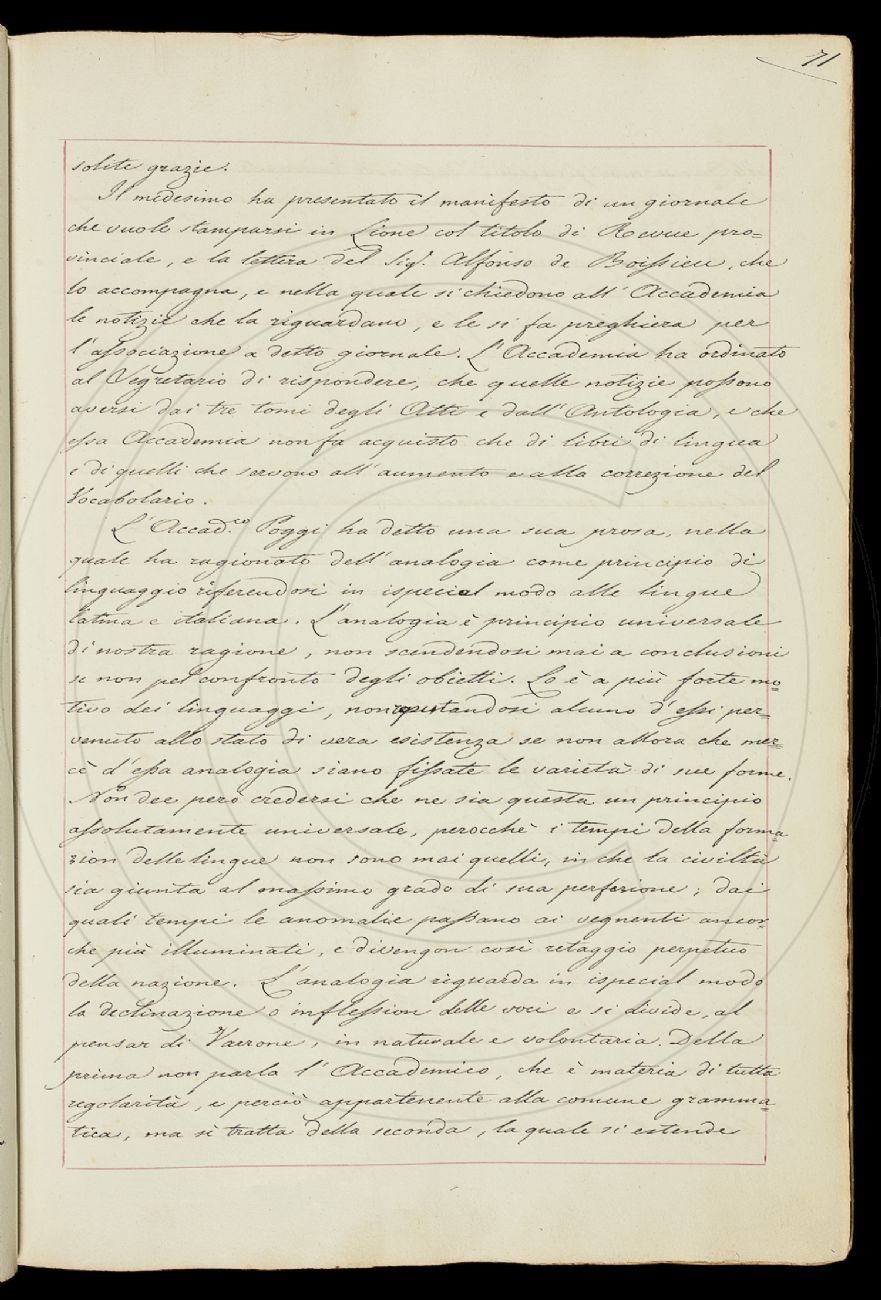 71
solite grazie.
Il medesimo ha presentato il manifesto di un giornale
che vuole stamparsi in Lione col titolo di Revue pro=
vinciale, e la lettera del Sig.r Alfonso de Boissieu, che
lo accompagna, e nella quale si chiedono all'Accademia
le notizie che la riguardano, e le si fa preghiera per
l'associazione a detto giornale. L'Accademia ha ordinato
al Segretario di rispondere, che quelle notizie possono
aversi dai tre tomi degli Atti e dall'Antologia, e che
essa Accademia non fa acquisto che di libri di lingua
e di quelli che servono all'aumento e alla correzione del
Vocabolario.
L'Accad.co Poggi ha detto una sua prosa, nella
quale ha ragionato dell'analogia come principio di
linguaggio riferendosi in ispecial modo alle lingue
latina e italiana. L'analogia è principio universale
di nostra ragione, non scendendosi mai a conclusioni
se non pel confronto degli obietti. Lo è a più forte mo=
tivo dei linguaggi, non reputandosi alcuno d'essi per=
venuto allo stato di vera esistenza se non allora che mer=
cè d'essa analogia siano fissate le varietà di sue forme.
Non dee però credersi che ne sia questa un principio
assolutamente universale, perocchè i tempi della forma=
zion delle lingue non sono mai quelli, in che la civiltà
sia giunta al massimo grado di sua perfezione; dai
quali tempi le anomalie passano ai vegnenti ancor=
che più illuminati, e divengon così retaggio perpetuo
della nazione. L'analogia riguarda in ispecial modo
la declinazione o inflession delle voci e si divide, al
pensar di Varrone, in naturale e volontaria. Della
prima non parla l'Accademico, che è materia di tutta
regolarità, e perciò appartenente alla comune gramma=
tica, ma si tratta della seconda, la quale si estende